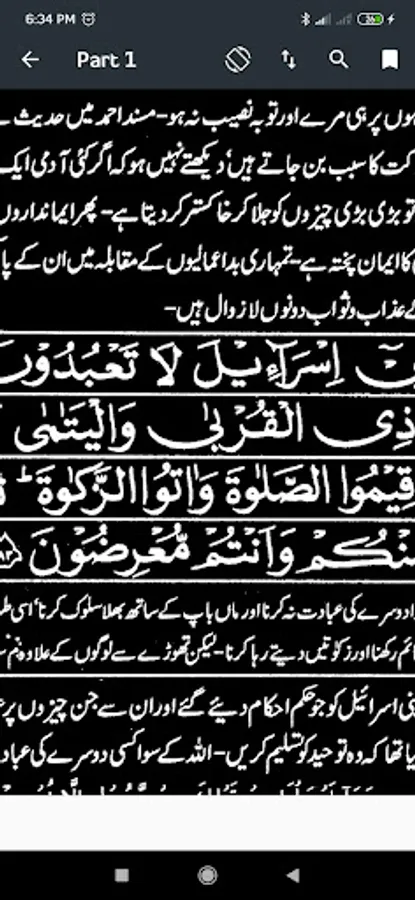 6:34 PM
Part 1
ہوں پر ہی مرے اور توبہ نصیب نہ ہو۔ مسند احمد میں حدیث ہے
کت کا سبب بن جاتے ہیں' دیکھتے نہیں ہو کہ اگر کئی آدمی ایک
تو بڑی بڑی چیزوں کو جلا کر خاکستر کر دیتا ہے۔ پھر ایمانداروں
کا ایمان پختہ ہے۔ تمہاری بد اعمالیوں کے مقابلہ میں ان کے پا
ے عذاب و ثواب دونوں لازوال ہیں۔
اِسْرَآءِیْلَ لَا تَعْبُدُوْنَ
ذِی الْقُرْبٰی وَالْیَتٰمٰی
قِیْمُوا الصَّلٰوةَ وَاٰتُوا الزَّکٰوةَ ؕ
مِّنْکُمْ وَاَنْتُمْ مُّعْرِضُوْنَ ﴿۸۳﴾
دوسرے کی عبادت نہ کرنا اور ماں باپ کے ساتھ بھلا سلوک کرنا' اسی طر
ئم رکھنا اور زکوٰتیں دیتے رہا کرنا۔ لیکن تھوڑے سے لوگوں کے علاوہ تم س
نی اسرائیل کو جو حکم احکام دیئے گئے اور ان سے جن چیزوں پر ع
یا تھا کہ وہ توحید کو تسلیم کریں۔ اللہ کے سوا کسی دوسرے کی عباد